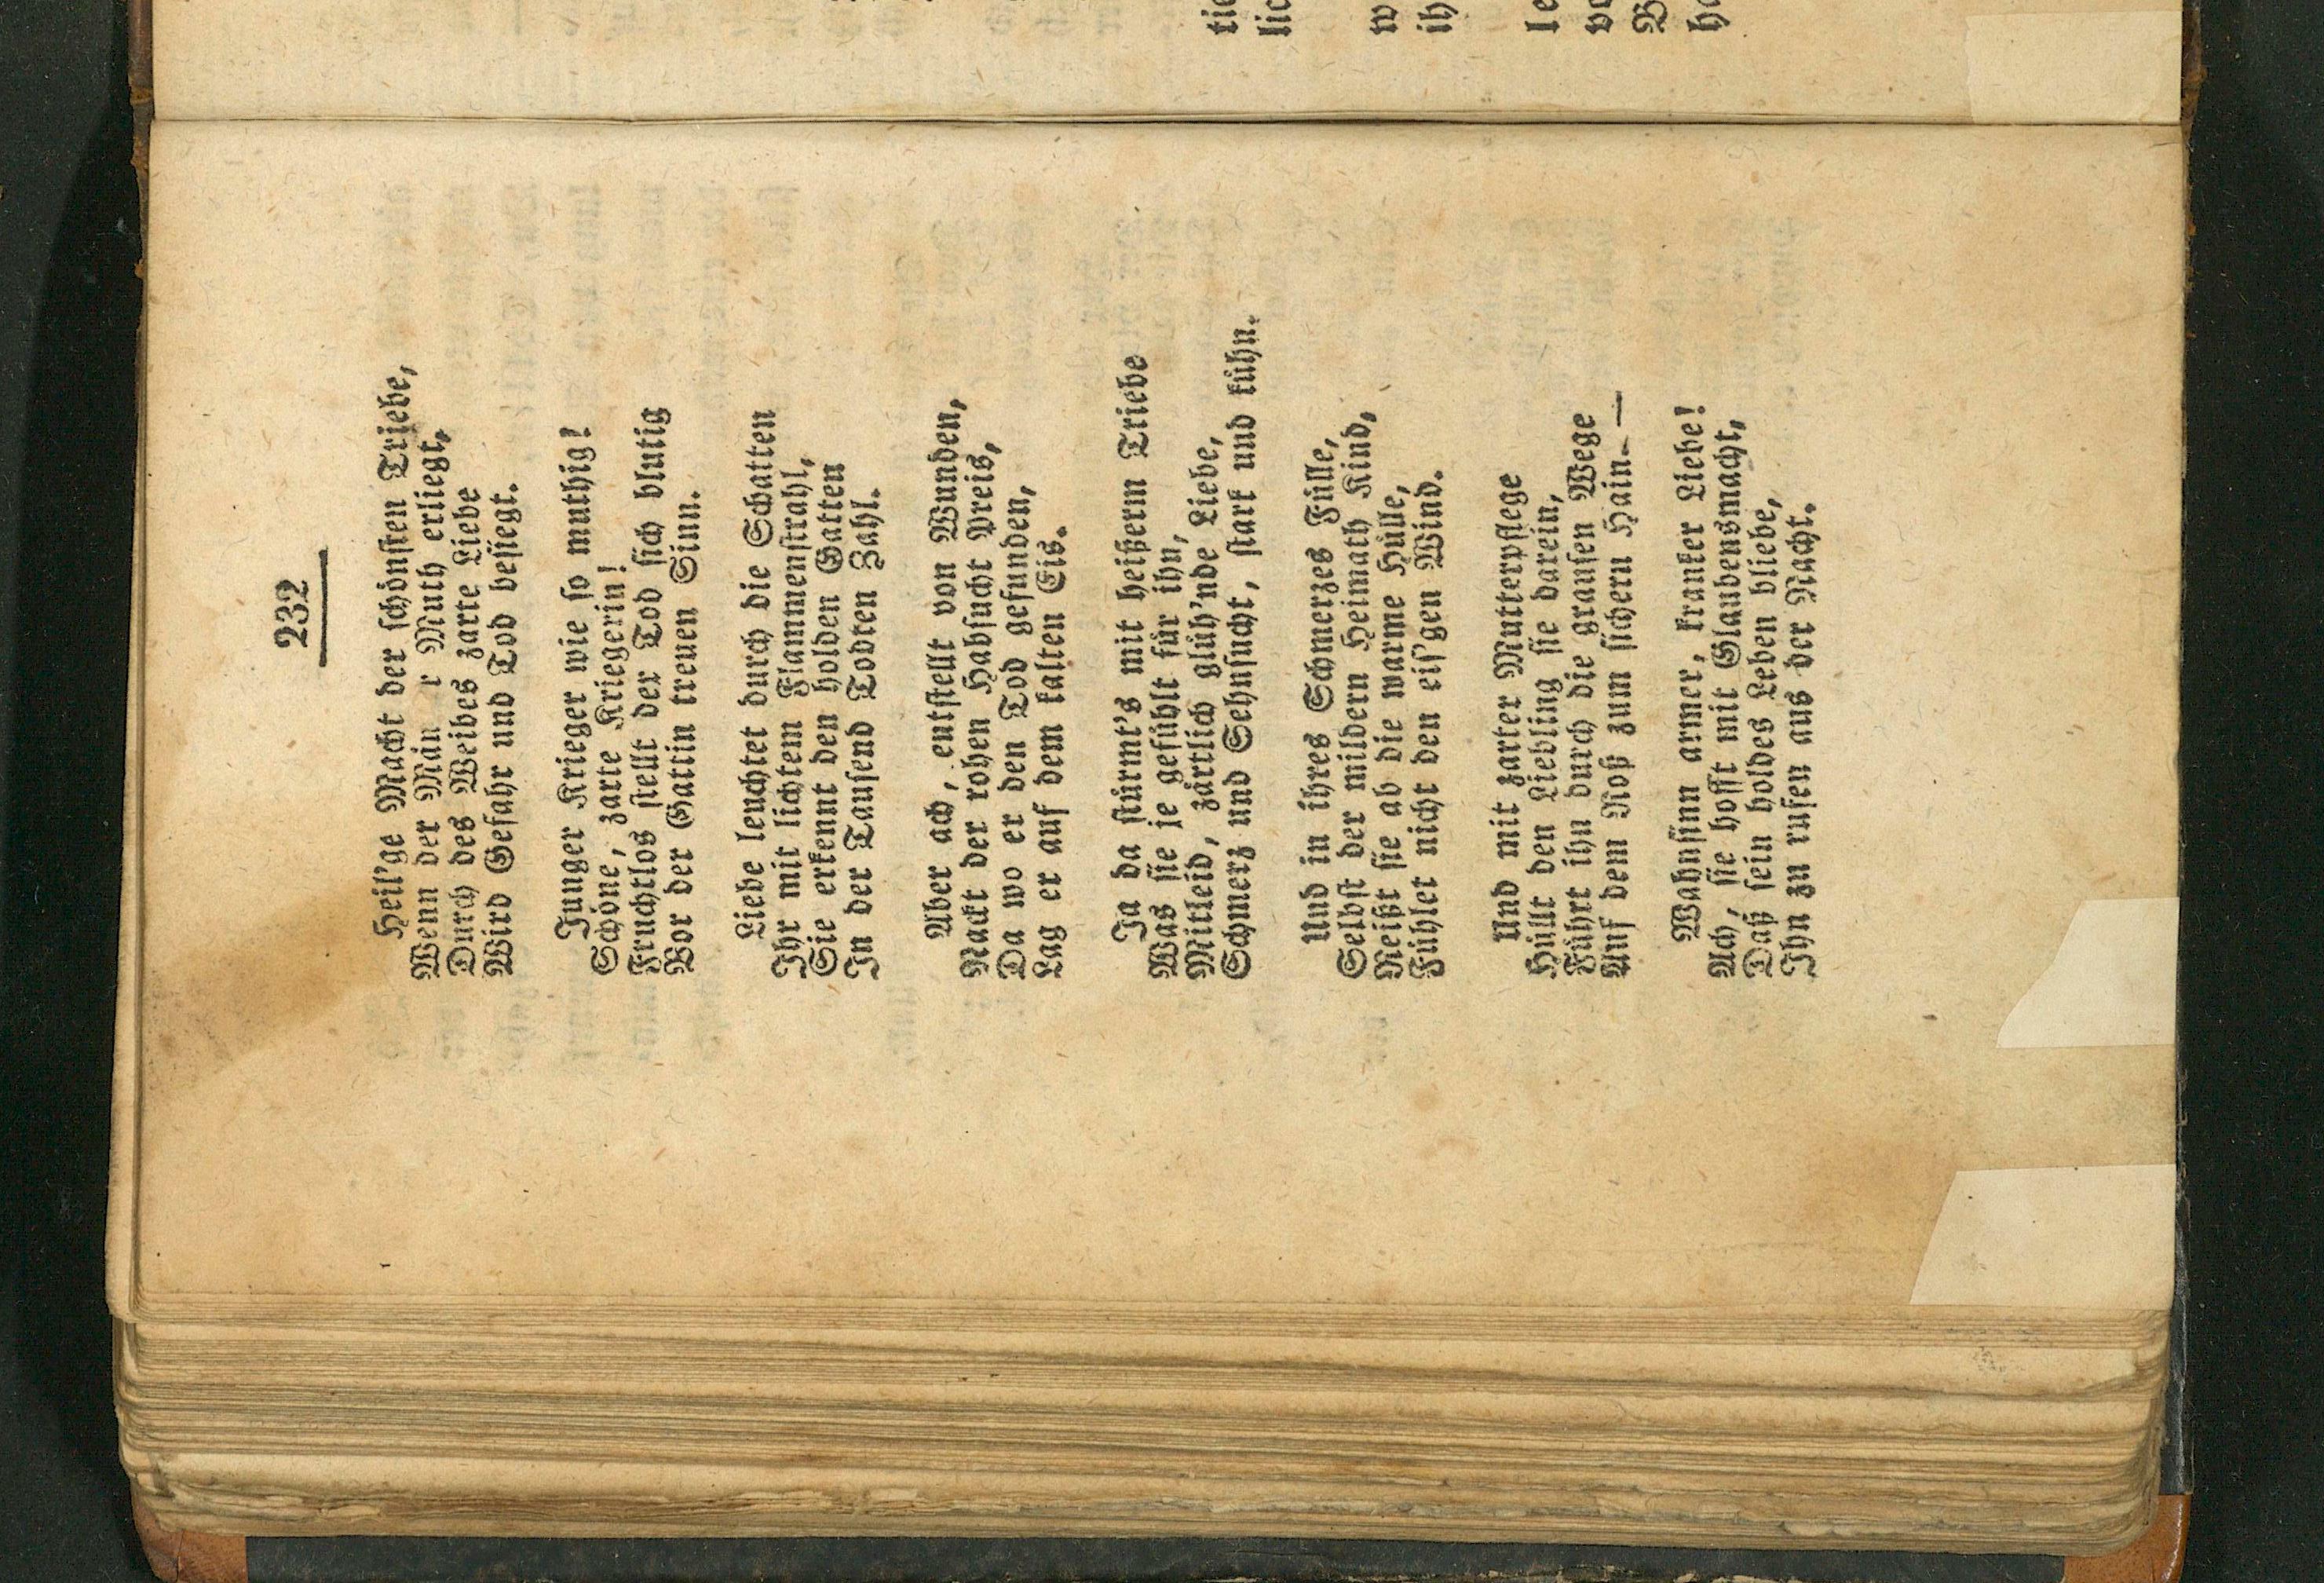 232
Heil'ge Macht der schönsten Triebe,
Wenn der Män r Muth erliegt,
Durch des Weibes zarte Liebe
Wird Gefahr und Tod besiegt.
Junger Krieger wie so muthig!
Schöne, zarte Kriegerin!
Fruchtlos stellt der Tod sich blutig
Vor der Gattin treuen Sinn.
Liebe leuchtet durch die Schatten
Ihr mit lichtem Flammenstrahl,
Sie erkennt den holden Gatten
In der Tausend Todten Zahl.
Aber ach, entstellt von Wunden,
Nackt der rohen Habsucht Preis,
Da wo er den Tod gefunden,
Lag er auf dem kalten Eis.
Ja da stürmt's mit heißerm Triebe
Was sie je gefühlt für ihn,
Mitleid, zärtlich glüh'nde Liebe,
Schmerz und Sehnsucht, stark und kühn.
Und in ihres Schmerzes Fülle,
Selbst der mildern Heimath Kind,
Reißt sie ab die warme Hülle,
Fühlet nicht den eis'gen Wind.
Und mit zarter Mutterpflege
Hüllt den Liebling sie darein,
Führt ihn durch die grausen Wege
Auf dem Roß zum sichern Hain. —
Wahnsinn armer, kranker Liebe!
Ach, sie hofft mit Glaubensmacht,
Daß sein holdes Leben bliebe,
Ihn zu rufen aus der Nacht.
tie
lic
w
ih
le
vo
W
ho